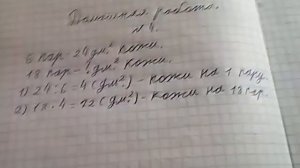 Домашняя работа.
№ 4.
6 пар - 24 дм² кожи.
18 пар - ? дм² кожи.
1) 24 : 6 = 4 (дм²) - кожи на 1 пару.
2) 18 · 4 = 72 (дм²) - кожи на 18 пар.